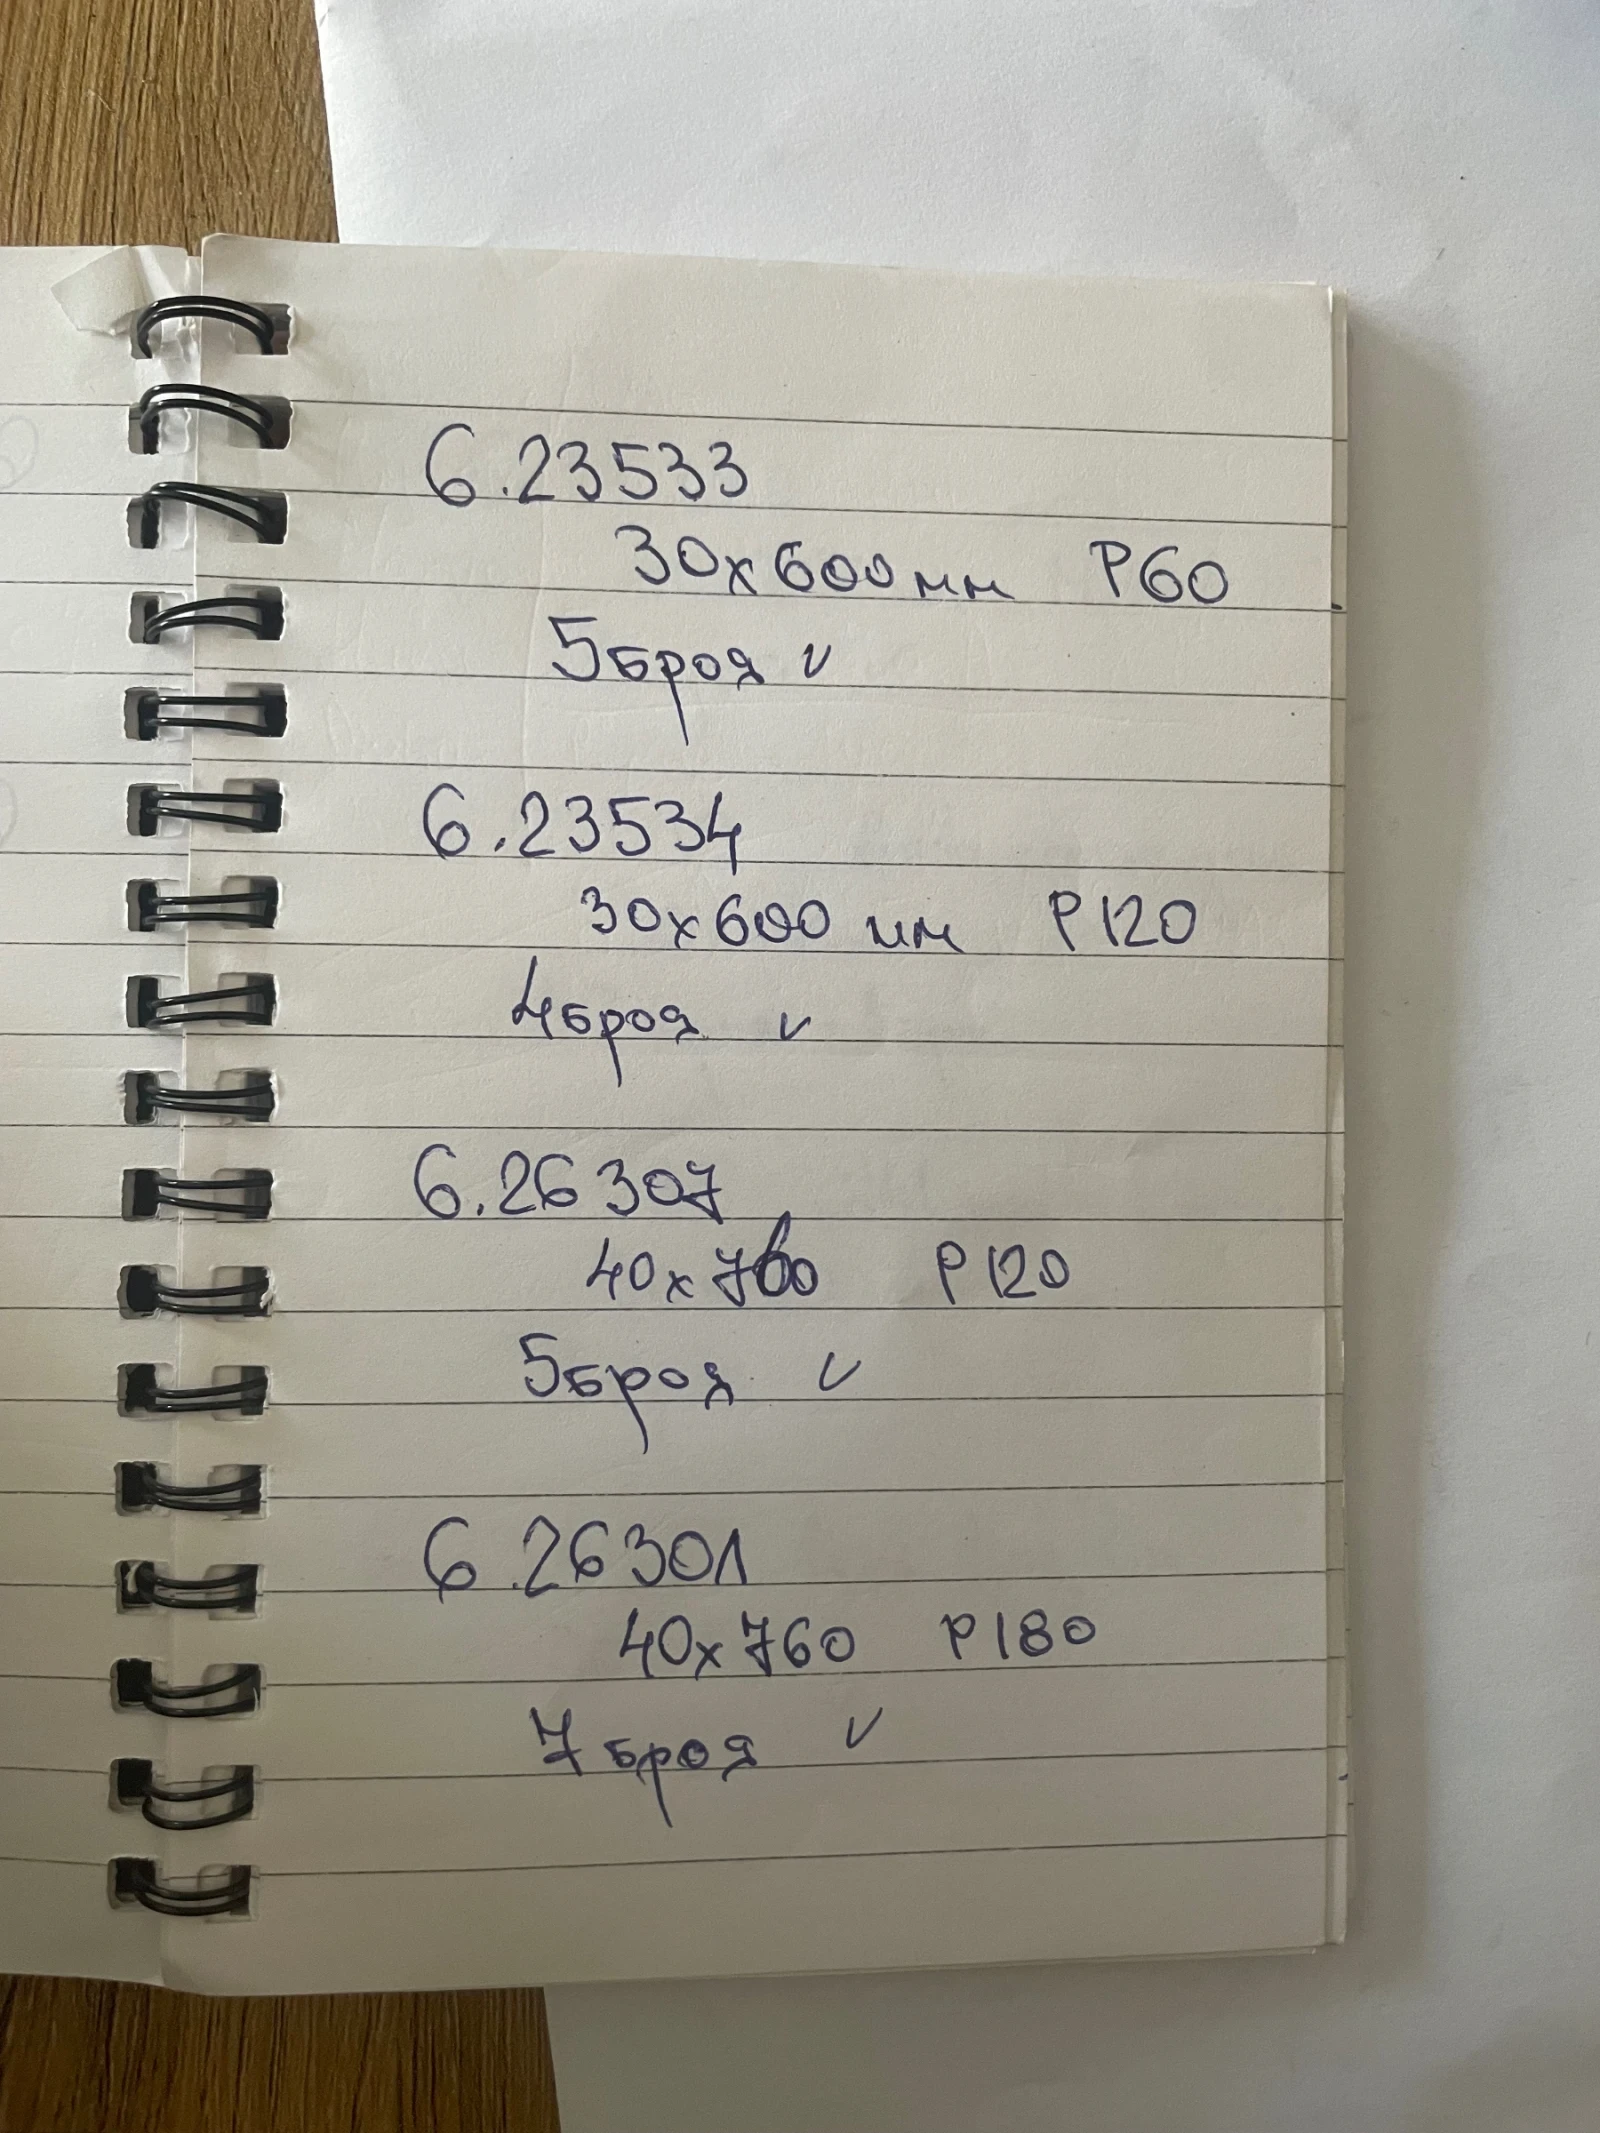 6.23533
30x600мм P60
5броя v
6.23534
30x600 мм P120
4броя v
6.26307
40x760 P120
5броя v
6.26301
40x760 P180
7броя v